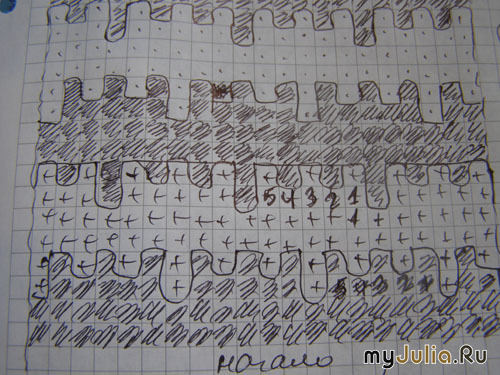 5 4 3 2 1
1
5 4 3 2 1
начало
myJulia.Ru